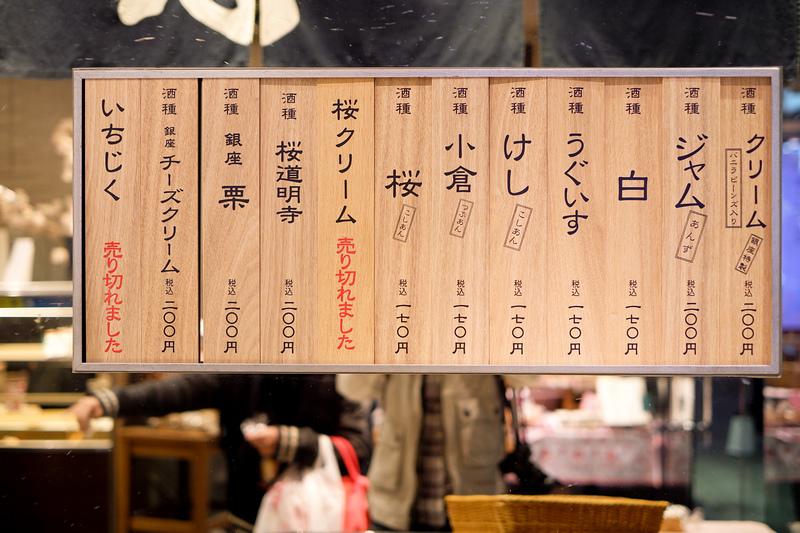 酒種 クリーム バニラビーンズ入り 銀座特製 税込 二〇〇円
酒種 ジャム あんず 税込 二〇〇円
酒種 白 税込 一七〇円
酒種 うぐいす 税込 一七〇円
酒種 けし こしあん 税込 一七〇円
酒種 小倉 つぶあん 税込 一七〇円
酒種 桜 こしあん 税込 一七〇円
桜クリーム 売り切れました
酒種 桜道明寺 税込 二〇〇円
酒種 銀座 栗 税込 二〇〇円
酒種 銀座 チーズクリーム 税込 二〇〇円
いちじく 売り切れました